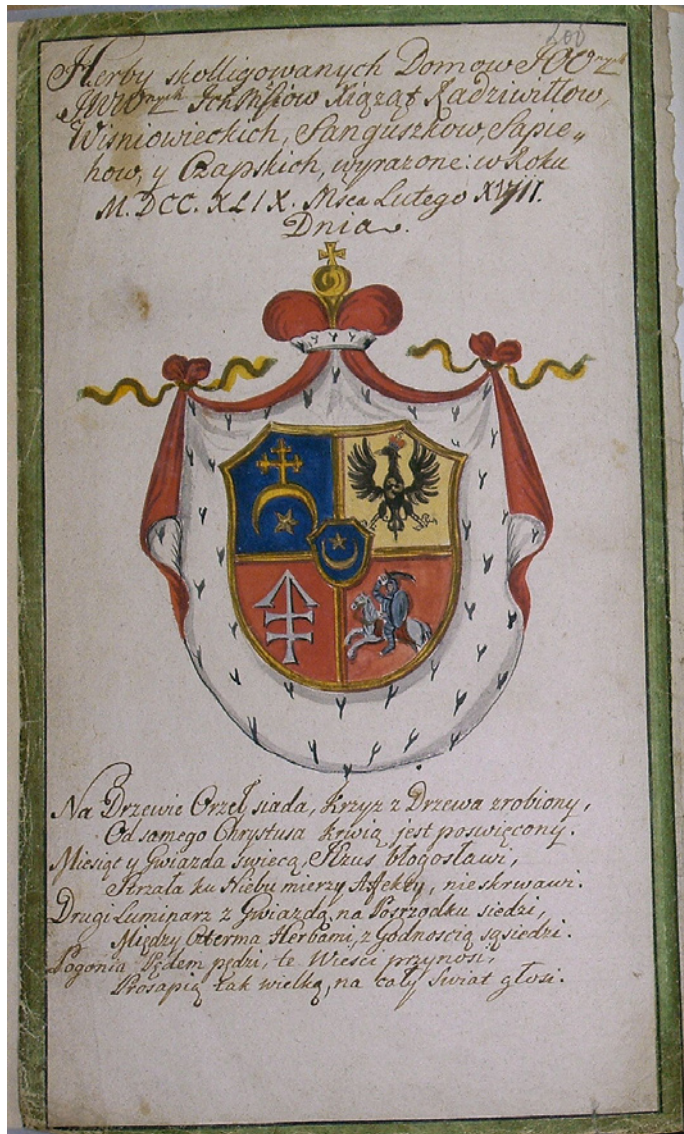 200
Herby skolligowanych Domow JOO
JWW Ichmściow Xiąząt Radziwiłłow,
Wiśniowieckich, Sanguszkow, Sapie„
how, y Czapskich, wyrazone: w Roku
M. DCC. XLIX. Msca Lutego XVII.
Dnia.
Na Drzewie Orzeł siada, Krzyz z Drzewa zrobiony,
Od samego Chrystusa krwią jest poswięcony.
Miesiąc y Gwiazda swiecą, JEzus błogosławi,
Strzała ku Niebu mierzy Affekty, nie skrwawi.
Drugi Luminarz z Gwiazdą, na Posrzodku siedzi,
Między Czterma Herbami, z Godnoscią sąsiedzi.
Pogonia Pędem pędzi, te Wiesci przynosi,
Prosapią tak wielką, na cały Swiat głosi.